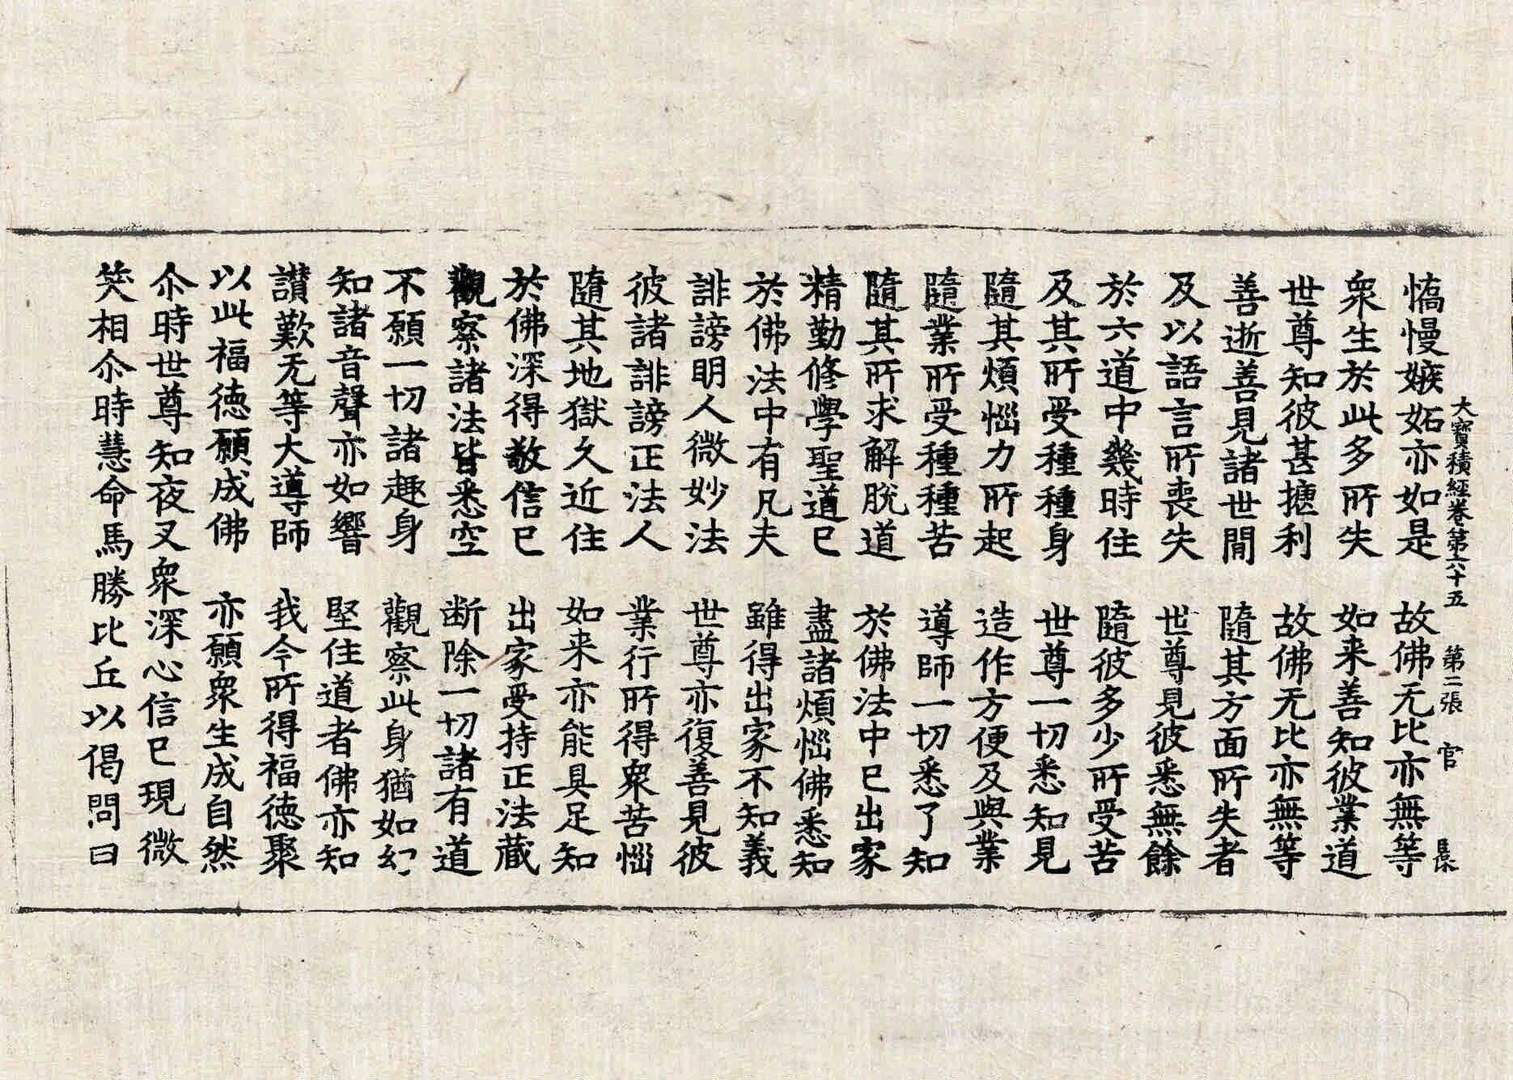 大寶積經卷第六十五　第二張　官
憍慢嫉妬亦如是　故佛无比亦無等
衆生於此多所失　如来善知彼業道
世尊知彼甚摠利　故佛无比亦無等
善逝善見諸世間　隨其方面所失者
及以語言所喪失　世尊見彼悉無餘
於六道中幾時住　隨彼多少所受苦
及其所受種種身　世尊一切悉知見
隨其煩惱力所起　造作方便及與業
隨業所受種種苦　導師一切悉了知
隨其所求解脫道　於佛法中已出家
精勤修學聖道已　盡諸煩惱佛悉知
於佛法中有凡夫　雖得出家不知義
誹謗明人微妙法　世尊亦復善見彼
彼諸誹謗正法人　業行所得衆苦惱
隨其地獄久近住　如来亦能具足知
於佛深得敬信已　出家受持正法藏
觀察諸法皆悉空　断除一切諸有道
不願一切諸趣身　觀察此身猶如幻
知諸音聲亦如響　堅住道者佛亦知
讃歎无等大導師　我今所得福德聚
以此福德願成佛　亦願衆生成自然
尒時世尊知夜叉衆深心信已現微
笑相尒時慧命馬勝比丘以偈問曰